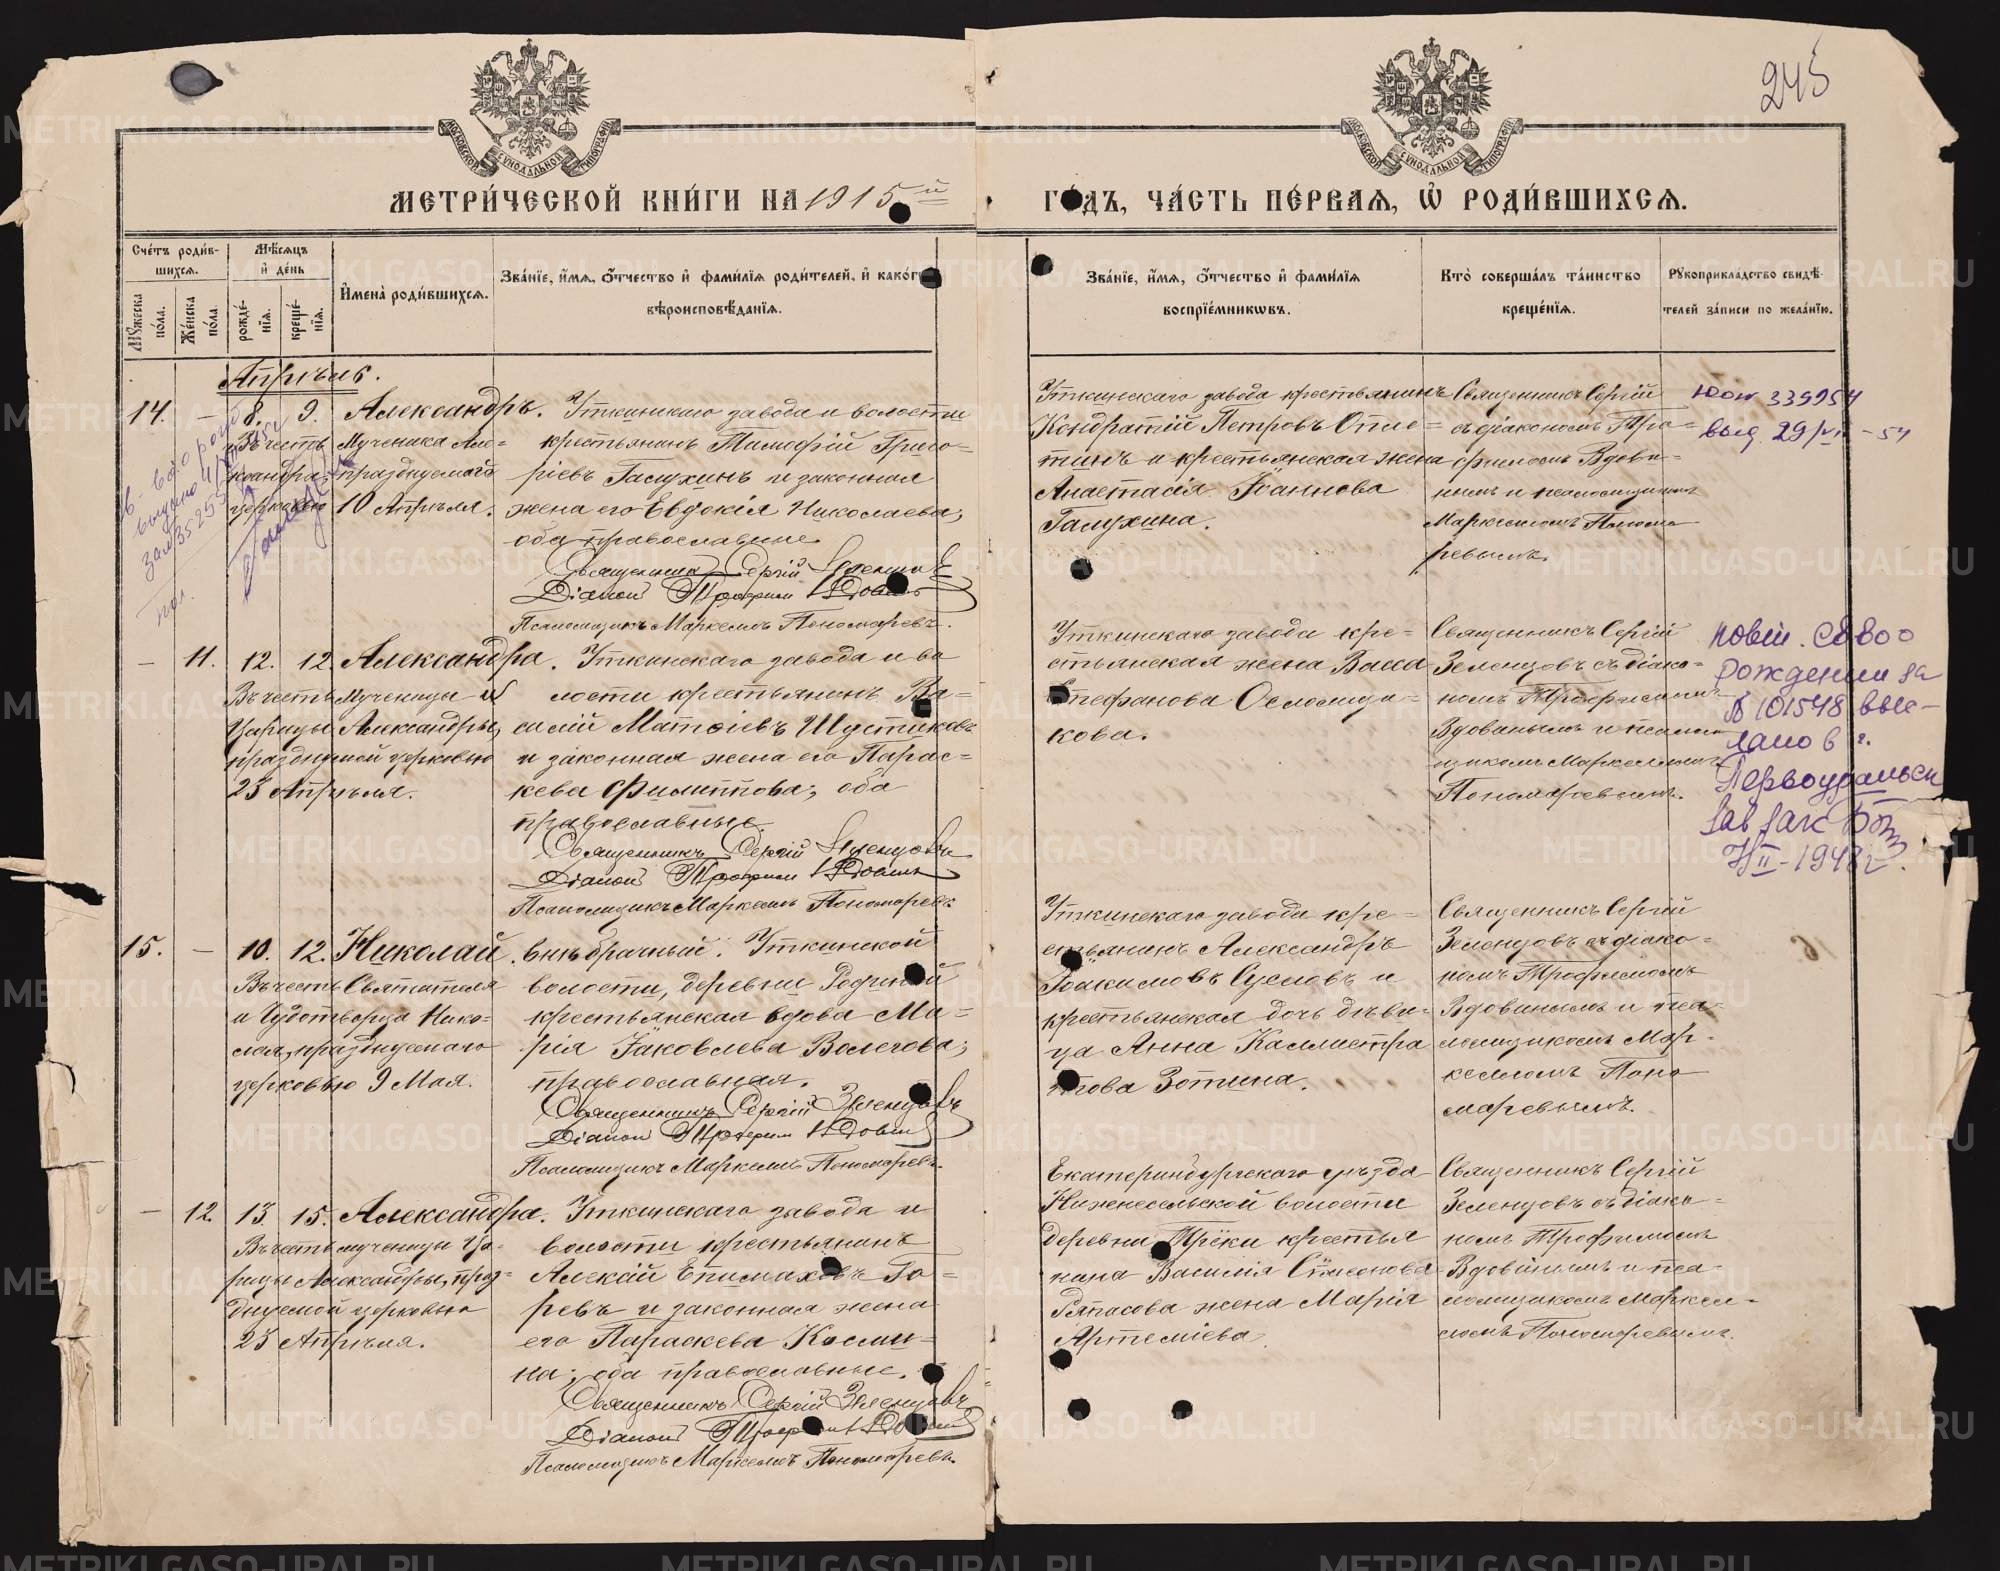 245
МОСКОВСКОЙ СѴНОДАЛЬНОЙ ТИПОГРАФІИ
МОСКОВСКОЙ СѴНОДАЛЬНОЙ ТИПОГРАФІИ
МЕТРИ́ЧЕСКОЙ КНИ́ГИ НА 1915й
ГО́ДЪ, ЧА́СТЬ ПЕ́РВАЯ, Ѡ҆ РОДИ́ВШИХСЯ.
Сче́тъ роди́в-
шихся.
Мѣ́сяцъ
и҆ де́нь
Мꙋ́жеска
по́ла.
Же́нска
по́ла.
рожде́-
нїя.
креще́-
нїя.
И҆мена̀ роди́вшихся.
Зва́нїе, и҆́мя, ѻ҆́тчество и҆ фами́лїя роди́телей, и҆ како́гѡ
вѣроисповѣ́данїя.
Зва́нїе, и҆́мя, ѻ҆́тчество и҆ фами́лїя
воспрїе́мникѡвъ.
Кто̀ соверша́лъ та́инство
креще́нїя.
Рꙋкоприкла́дство свидѣ́-
телей за́писи по жела́нїю.
Апрѣль.
14. – 8. 9. Александръ.
Въ честь Мученика Але-
ксандра, празднуемаго
церковью 10 Апрѣля.
Уткинскаго завода и волости
крестьянинъ Тимофій Григо-
ріевъ Галухинъ и законная
жена его Евдокія Николаева;
оба православные.
Священникъ Сергій Зеленцовъ
Діаконъ Трофимъ Вдовинъ
Псаломщикъ Маркеллъ Пономаревъ.
Уткинскаго завода крестьянинъ
Кондратій Петровъ
и крестьянская жена
Анастасія Іоаннова
Галухина.
Священникъ Сергій
съ діакономъ Тро-
фимомъ Вдови-
нымъ и псаломщикомъ
Маркелломъ Понома
ревымъ.
339954
выд. 29/VI – 54
– 11. 12. 12 Александра.
Въ честь Мученицы
Царицы Александры,
празднуемой церковью
23 Апрѣля.
Уткинскаго завода и во
лости крестьянинъ Ва-
силій Матѳіевъ Шустиковъ
и законная жена его Парас-
кева Филиппова; оба
православные.
Священникъ Сергій Зеленцовъ
Діаконъ Трофимъ Вдовинъ
Псаломщикъ Маркеллъ Пономаревъ
Уткинскаго завода кре-
стьянская жена Васса
Стефанова
кова.
Священникъ Сергій
Зеленцовъ съ діако-
номъ Трофимомъ
Вдовинымъ и псалом
щикомъ Маркелломъ
Пономаревымъ.
повт. св во о
рождении за
№ 101548 выс-
лано в г.
Первоуральск
7/II – 1948 г.
15. – 10. 12. Николай.
Въ честь Святителя
и Чудотворца Нико-
лая, празднуемаго
церковью 9 Мая.
внѣбрачный. Уткинской
волости, деревни
крестьянская вдова Ма-
рія Іаковлева Волегова;
православная.
Священникъ Сергій Зеленцовъ
Діаконъ Трофимъ Вдовинъ
Псаломщикъ Маркеллъ Пономаревъ.
Уткинскаго завода кре-
стьянинъ Александръ
Іоакимовъ Сусловъ и
крестьянская дочь дѣви-
ца Анна Каллистра
това Зотина.
Священникъ Сергій
Зеленцовъ съ діако-
номъ Трофимомъ
Вдовинымъ и пса-
ломщикомъ Мар-
келломъ Поно
маревымъ.
– 12. 13. 15. Александра.
Въ честь мученицы Ца-
рицы Александры, праз-
днуемой церковью
23 Апрѣля.
Уткинскаго завода и
волости крестьянинъ
Алексій Епимаховъ Го-
ревъ и законная жена
его Параскева Косми-
на; оба православные.
Священникъ Сергій Зеленцовъ
Діаконъ Трофимъ Вдовинъ
Псаломщикъ Маркеллъ Пономаревъ.
Екатеринбургскаго уѣзда
Нижнесельской волости
деревни Трёки крестья
нина Василія Симеонова
жена Марія
Артеміева.
Священникъ Сергій
Зеленцовъ съ діако-
номъ Трофимомъ
Вдовинымъ и пса-
ломщикомъ Маркел-
ломъ Пономаревымъ.
METRIKI.GASO-URAL.RU